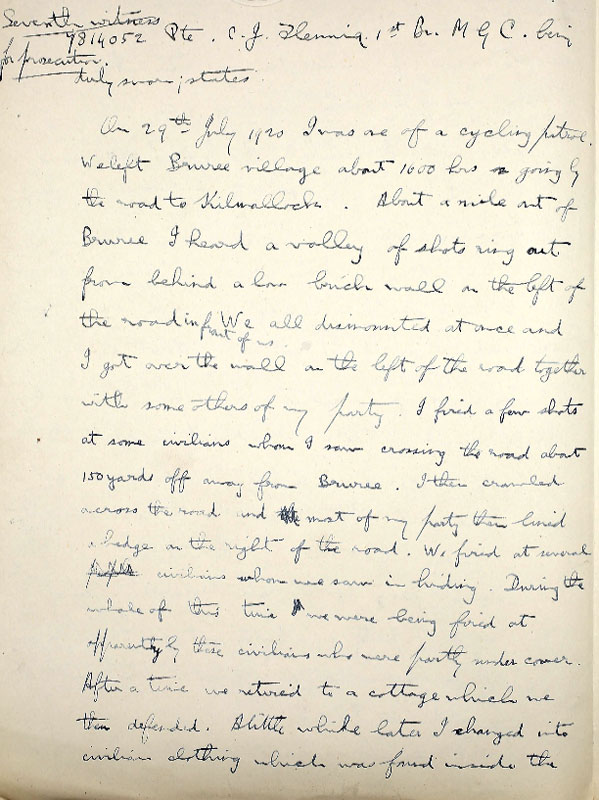 Seventh witness
for prosecution.
7814052 Pte. C. J. Fleming 1st Bn. M G C. being
duly sworn, states
On 29th July 1920 I was one of a cycling patrol.
We left Bruree village about 1600 hrs going by
the road to Kilmallock. About a mile out of
Bruree I heard a volley of shots ring out
from behind a low brick wall on the left of
the road in front of us. We all dismounted at once and
I got over the wall on the left of the road together
with some others of my party. I fired a few shots
at some civilians whom I saw crossing the road about
150 yards off away from Bruree. I then crawled
across the road and most of my party then lined
a hedge on the right of the road. We fired at several
civilians whom we saw in hiding. During the
whole of this time we were being fired at
apparently by these civilians who were partly under cover.
After a time we retired to a cottage which we
then defended. A little while later I changed into
civilian clothing which was found inside the